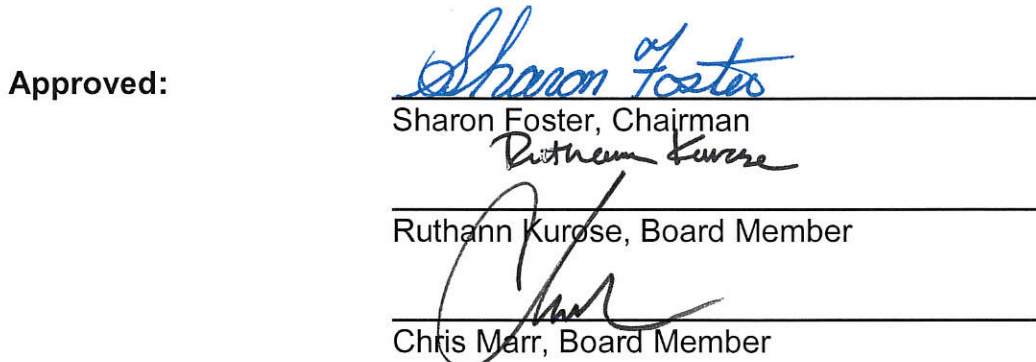 Approved:
Sharon Foster
Sharon Foster, Chairman
Ruthann Kurose
Ruthann Kurose, Board Member
Chris Marr, Board Member